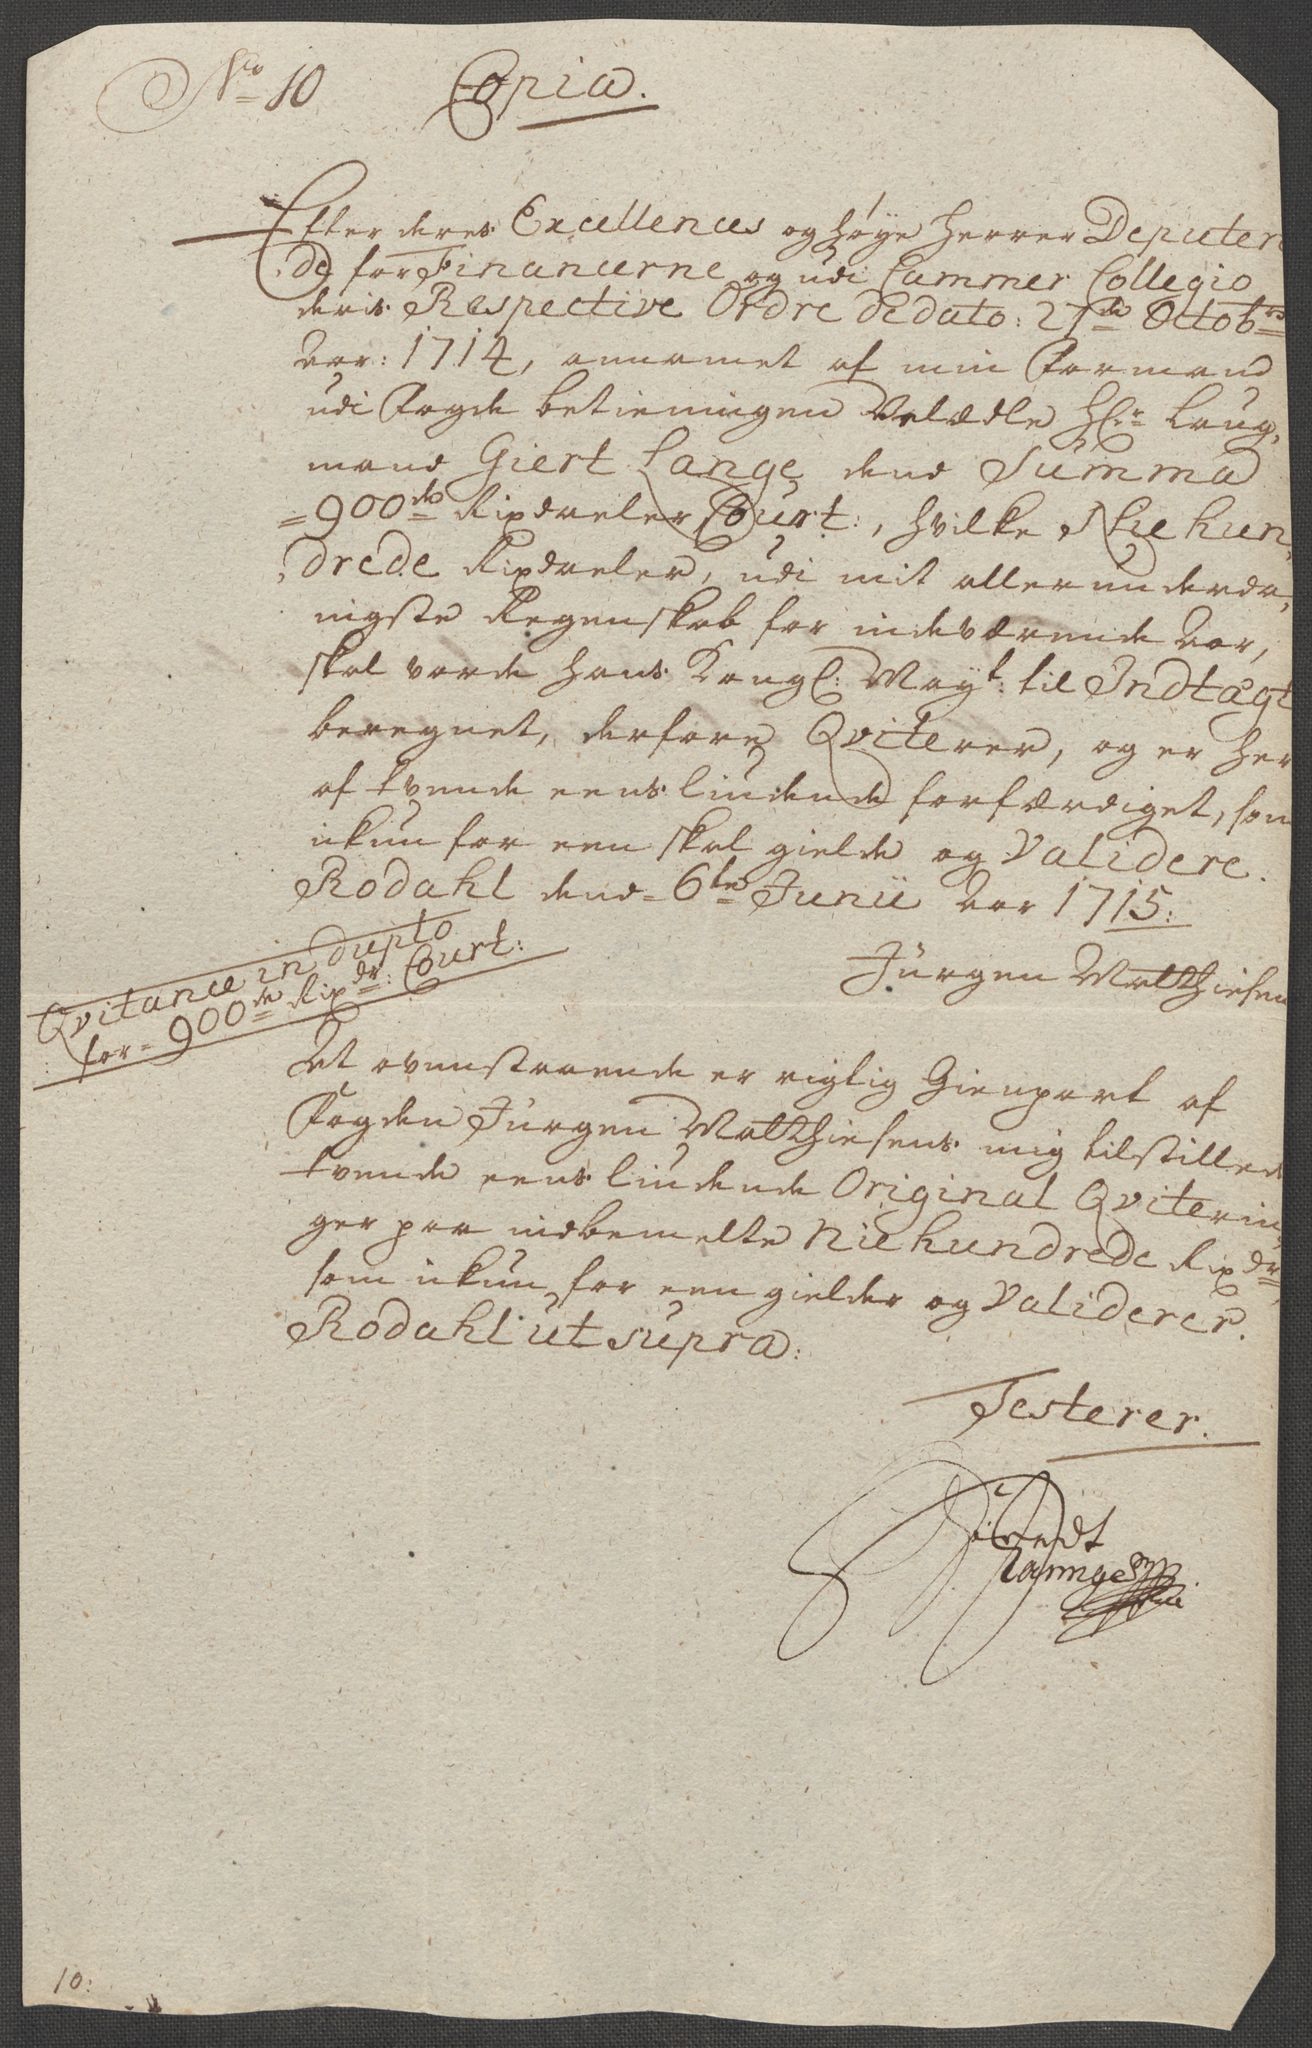 No 10 Copia.
Efter deres Excellences og høye Herrer Deputeren
de for Financerne og udi Cammer Collegio
deris Respective Ordre de dato: 27de Octobrs
Aar: 1714, annamet af min Formand
udi Fogde betieningen Velædle Hr: Laug,
mand Giert Lange, dend Summa
=900de Rixdaeler Court:, hvilke Niehun,
drede Rixdaeler, udi mit allerunderda,
nigste Regenskab for indeværende Aar,
skal vorde hans Kongl: Mayt: til Indtægt
beregnet, derfore Qviterer, og er her
af tvende eenslindende forfærdiget, som
ikun for een skal gielde og Validere.
Rodahl dend 6te Junii Aar 1715:
Jürgen Matthiesen
Qvitance in duplo
for= 900de Rixdr: Court:
Det ovenstaaende er rigtig Gienpart af
Fogden Jürgen Matthiesens mig tilstillede
tvende eenslindende Original Qviterin,
ger paa indbemelte Niehundrede Rixdr
som ikun for een gielder og Validerer.
Rodahl ut supra:
Testerer.
10: